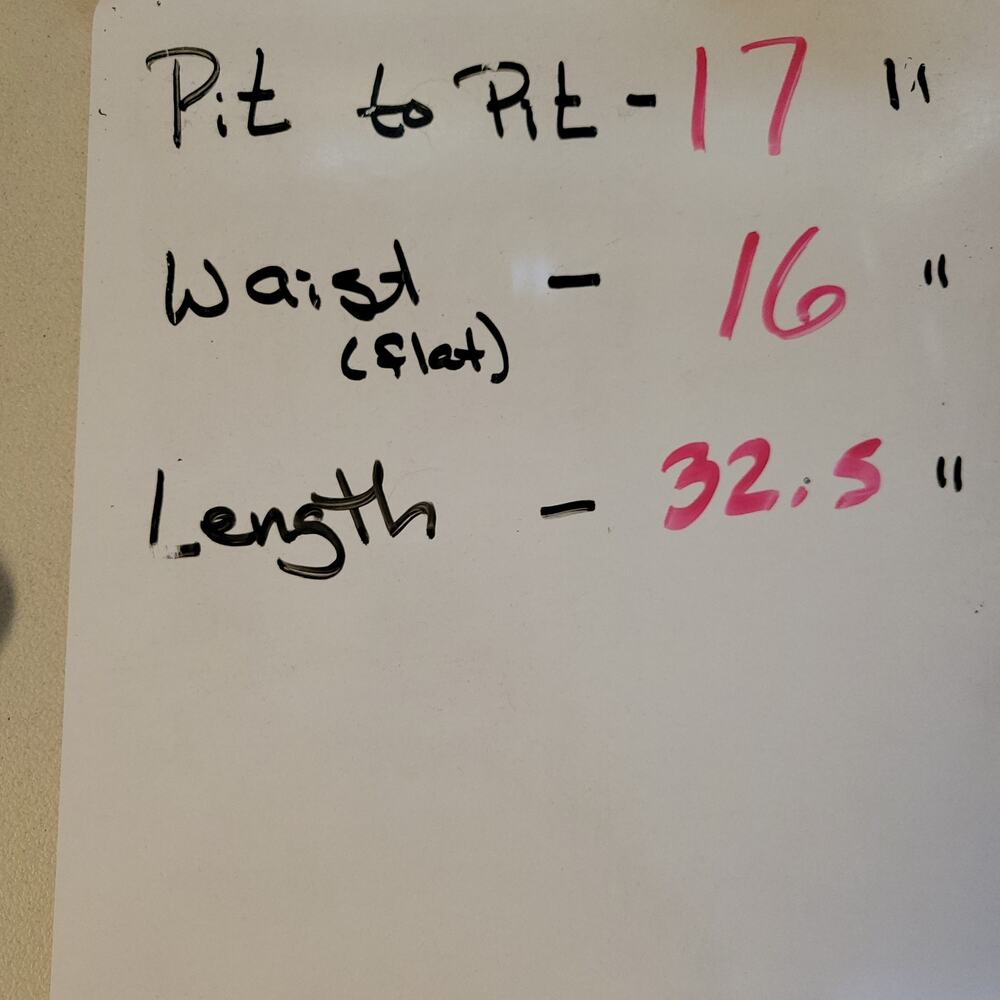 Pit to Pit - 17 "
Waist - 16 "
(flat)
Length - 32.5 "